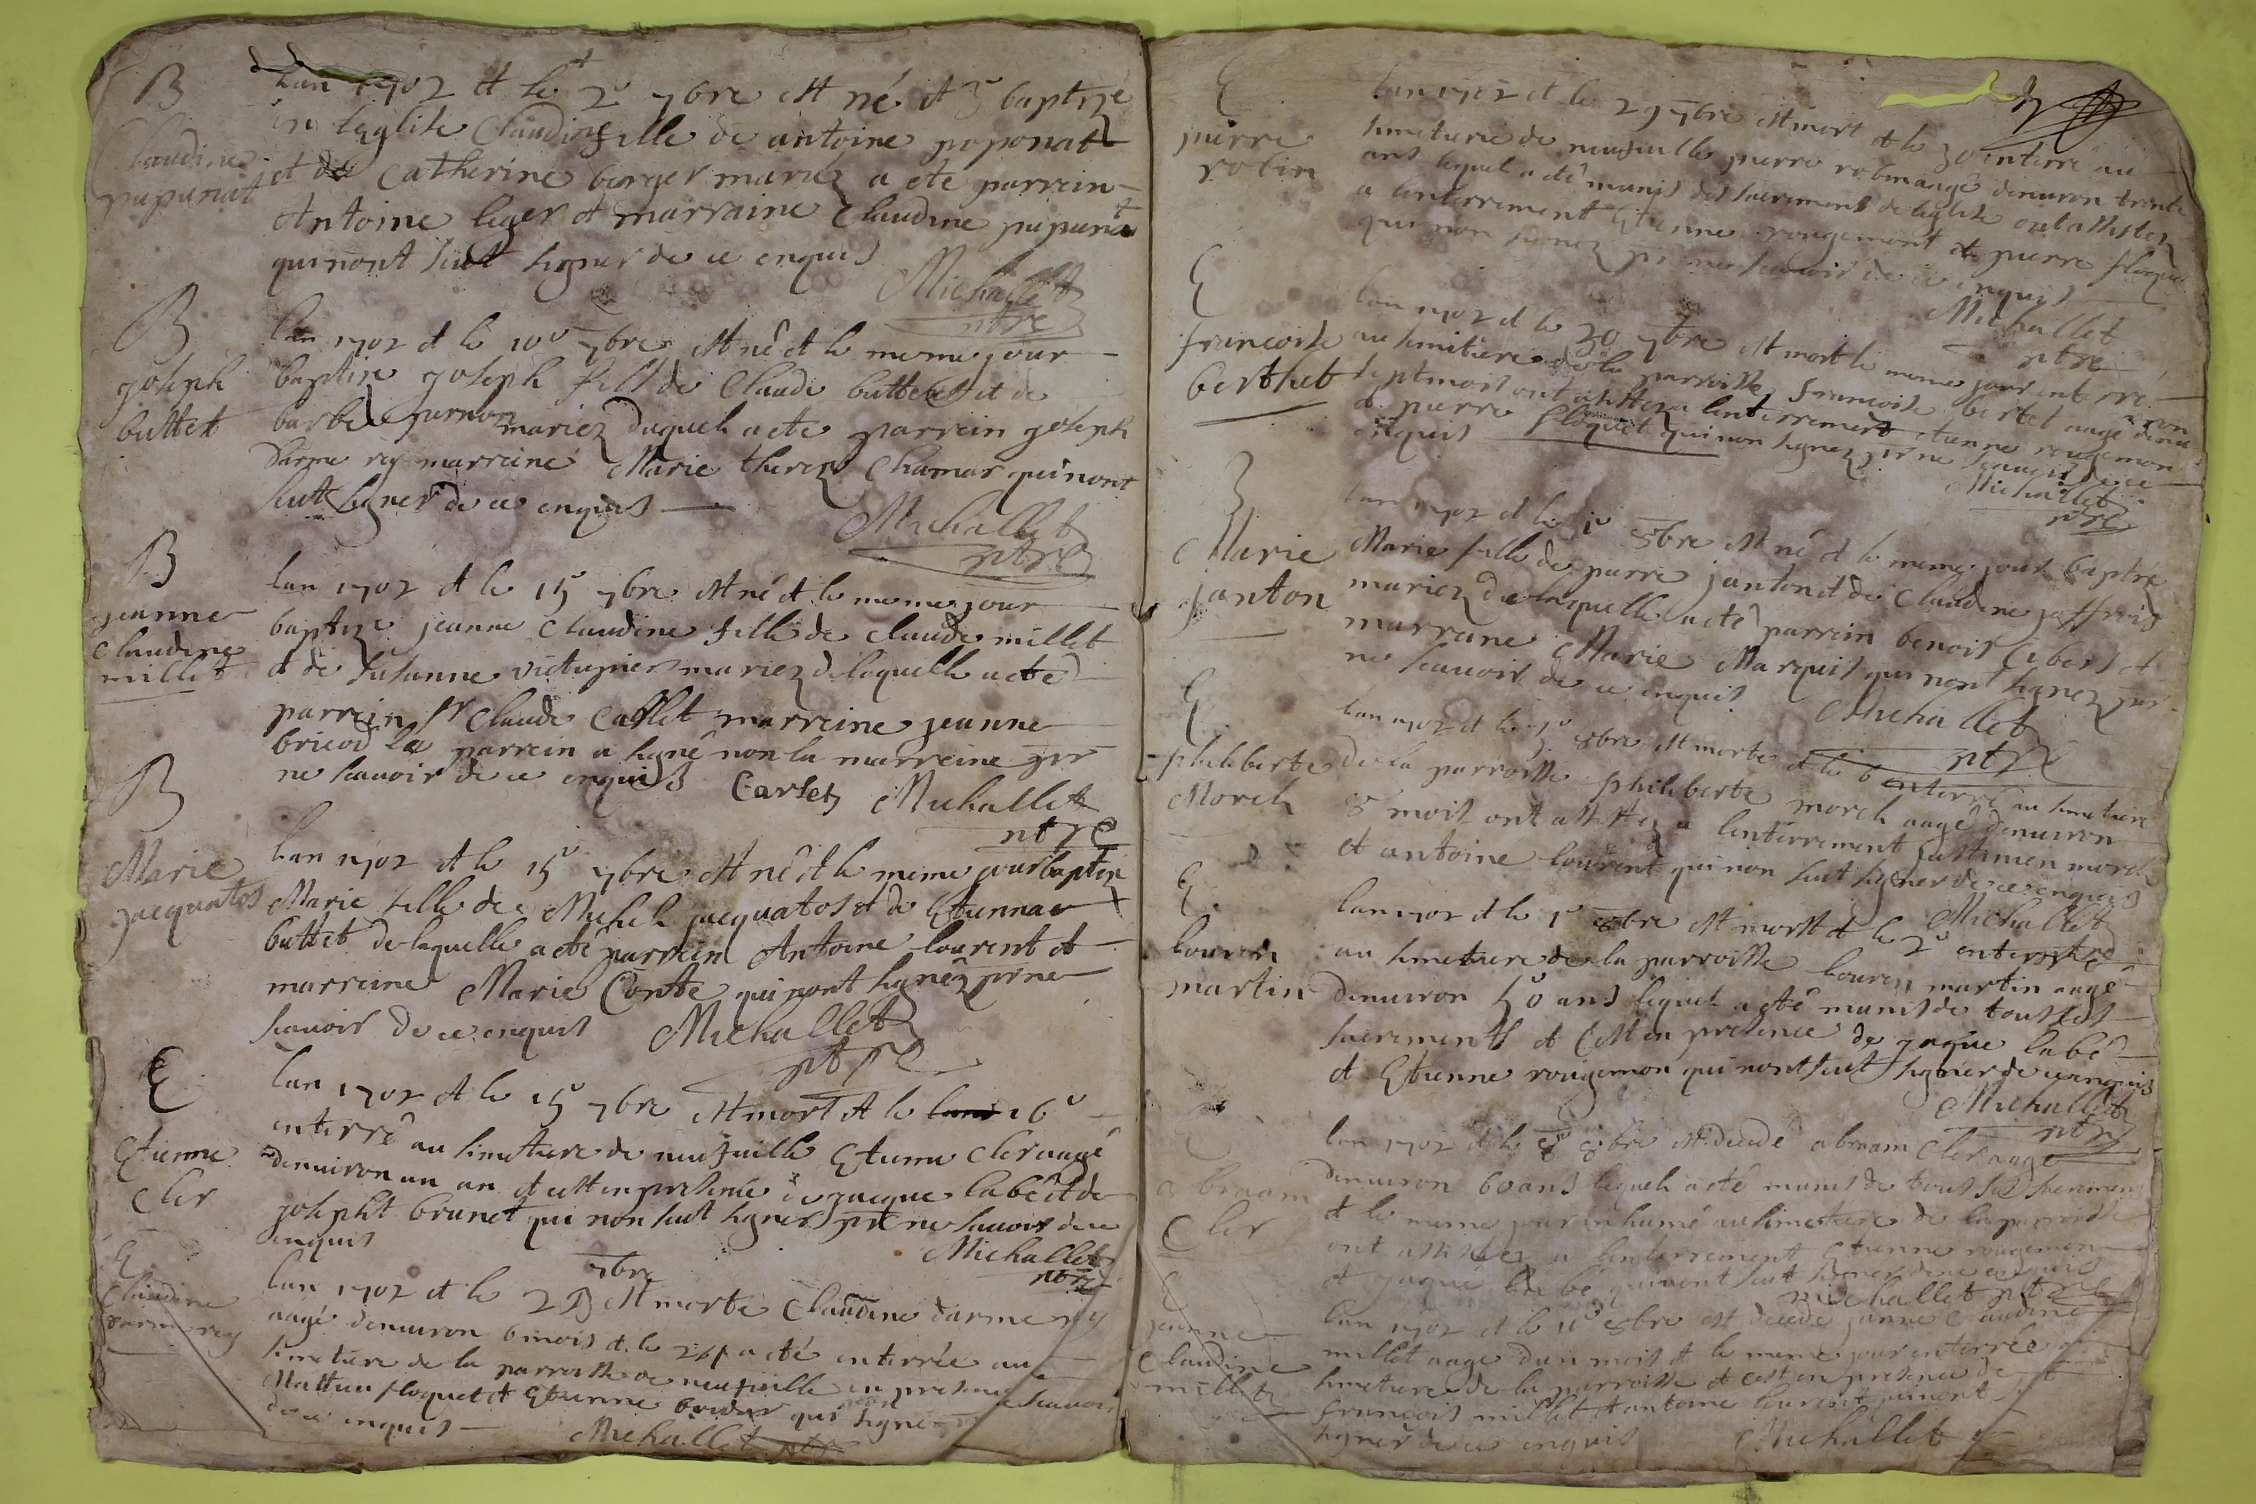 B
Claudine
papunat
Lan 1702 et le 2e 7bre est né et 3e baptizé
en leglise Claudine fille de antoine poponat
et de Catherine berger mariez a ete parrein
Antoine leger et marraine Claudine papuna
qui nont sceut signer de ce enquis
Michallet
ptre
B
joseph
buttet
Lan 1702 et le 10e 7bre est né et le meme jour
baptize joseph fils de Claude buttet et de
barbe mariez duquel a ete parrein joseph
Darme rey marreine Marie therez Chamar qui nont
sceut signer de ce enquis
Michallet
ptre
B
jeanne
Claudine
millet
lan 1702 et le 15 7bre est né et le meme jour
baptize jeanne Claudine fille de claude millet
et de susanne mariez de laquelle a eté
parrein sr Claude marreine jeanne
le parrein a signé non la marreine pour
ne scauoir de ce enquis Carlet Michallet
ptre
B
Marie
jacquatos
lan 1702 et le 15e 7bre est né et le meme jour baptize
Marie fille de Michel jacquatos et de Etienna
buttet de laquelle a eté parrein Antoine lourent et
marreine Marie Conte qui nont signéz pour ne
scauoir de ce enquis Michallet
ptre
E
Etienne
Cler
lan 1702 et le 15e 7bre est mort et le 16e
enterré au simetiere de neufuille Etienne Cler aagé
denuiron un an et cest en presence de jacque labé et de
joseph brunet qui non sceut signer pr ne scauoir de ce
enquis
Michallet
ptre
E
Claudine
darmerey
lan 1702 et le 23 7bre est morte Claudine darmerey
aagé denuiron 6 mois et le 24 a eté enterrée au
simetiere de la parroisse de neufuille en presence
Mattieu floquet et Etienne qui signé scauoir
de ce enquis
Michallet ptre
E
pierre
robin
lan 1702 et le 29 7bre est mort et le 30 enterré au
simetiere de neufuille pierre robin aagé denuiron trente
ans lequel a eté munis des sacrements de leglise ont assistez
a lenterrement Etienne rougemont et pierre floquet
qui non signez pr ne scauoir de ce enquis
Michallet
ptre
E
francoise
berthet
lan 1702 et le 30 7bre est mort le meme jour enterré
au simitiere de la parroisse francoise bertet aagé denuiron
sept mois ont assistez a lenterrement etienne rougemon
et pierre floquet qui non signez pr ne scauoir de ce
enquis
Michallet
ptre
B
Marie
janton
lan 1702 et le 1e 8bre est né et le meme jour baptizé
Marie fille de pierre janton et de Claudine joffrois
mariez de laquelle a eté parrein benois et
marraine Marie Marquis qui nont signez pour
ne scauoir de ce enquis
Michallet
ptre
E
philiberte
Morel
lan 1702 et le 5e 8bre est morte et le 6 enterré au simetiere
de la parroisse philiberte morel aagé denuiron
8 mois ont assistez a lenterrement morel
et antoine lourent qui non sceut signer de ce enquis
Michallet
ptre
E
louren
martin
lan 1702 et le 1e 8bre est mort et le 2e enterré
au simetiere de la parroisse louren martin aagé
denuiron 50 ans lequel a eté munis de tous les
sacrements et cest en presence de jaque labé
et Etienne rougemon qui nont sceut signer de ce enquis
Michallet
ptre
E
abraam
Cler
lan 1702 et le 8bre est decedé abraam Cler aagé
denuiron 60 ans lequel a eté munis de tous ses sacremens
et le meme jour inhumé au simetiere de la parroisse
ont assistez a lenterrement Etienne rougemon
et jaque labé qui nont sceut signer de ce enquis
Michallet ptre
E
jeanne
Claudine
millet
lan 1702 et le 8bre est decede janne Claudine
millet aagé dun mois et le meme jour enterrée au
simetiere de la parroisse et cest en presence de
francois millet et antoine lourent qui nont sceut
signer de ce enquis
Michallet